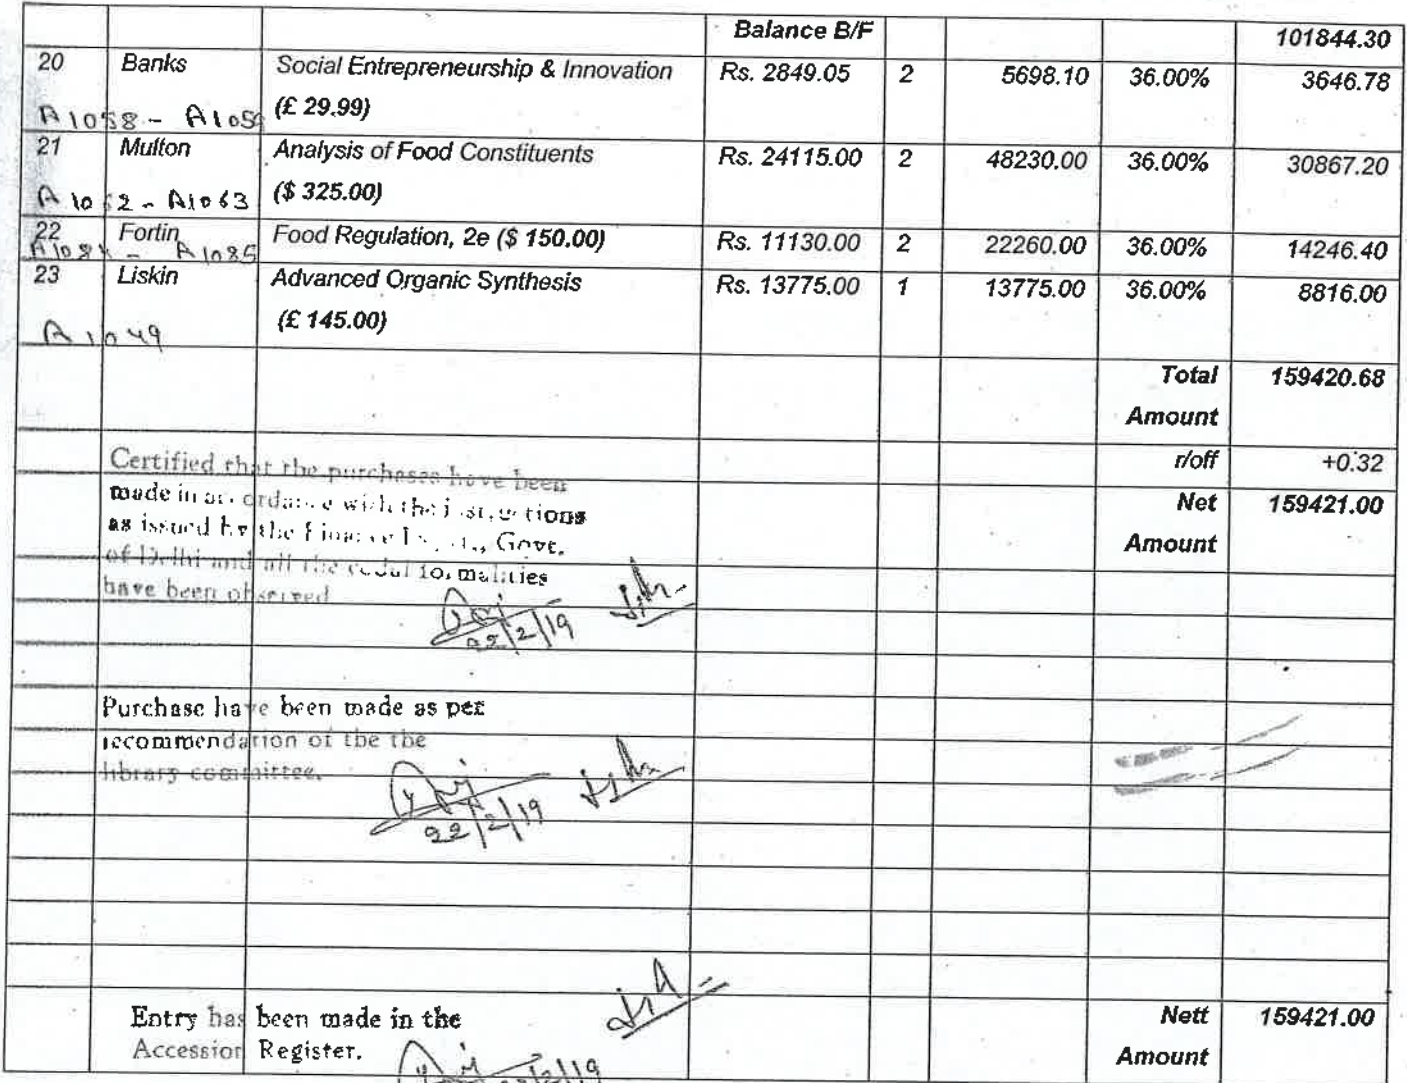 Balance B/F 101844.30
20 Banks Social Entrepreneurship & Innovation Rs. 2849.05 2 5698.10 36.00% 3646.78
(£ 29.99)
A1058 - A1059
21 Multon Analysis of Food Constituents Rs. 24115.00 2 48230.00 36.00% 30867.20
($ 325.00)
A1062 - A1063
22 Fortin Food Regulation, 2e ($ 150.00) Rs. 11130.00 2 22260.00 36.00% 14246.40
A1084 - A1085
23 Liskin Advanced Organic Synthesis Rs. 13775.00 1 13775.00 36.00% 8816.00
(£ 145.00)
A1049
Total 159420.68
Amount
r/off +0.32
Net 159421.00
Amount
Certified that the purchases have been
made in accordance with the instructions
as issued by the Finance Deptt., Govt.
of Delhi and all the codal formalities
have been observed
22/2/19
Purchase have been made as per
recommendation of the the
library committee.
22/2/19
Entry has been made in the
Accession Register.
Nett 159421.00
Amount